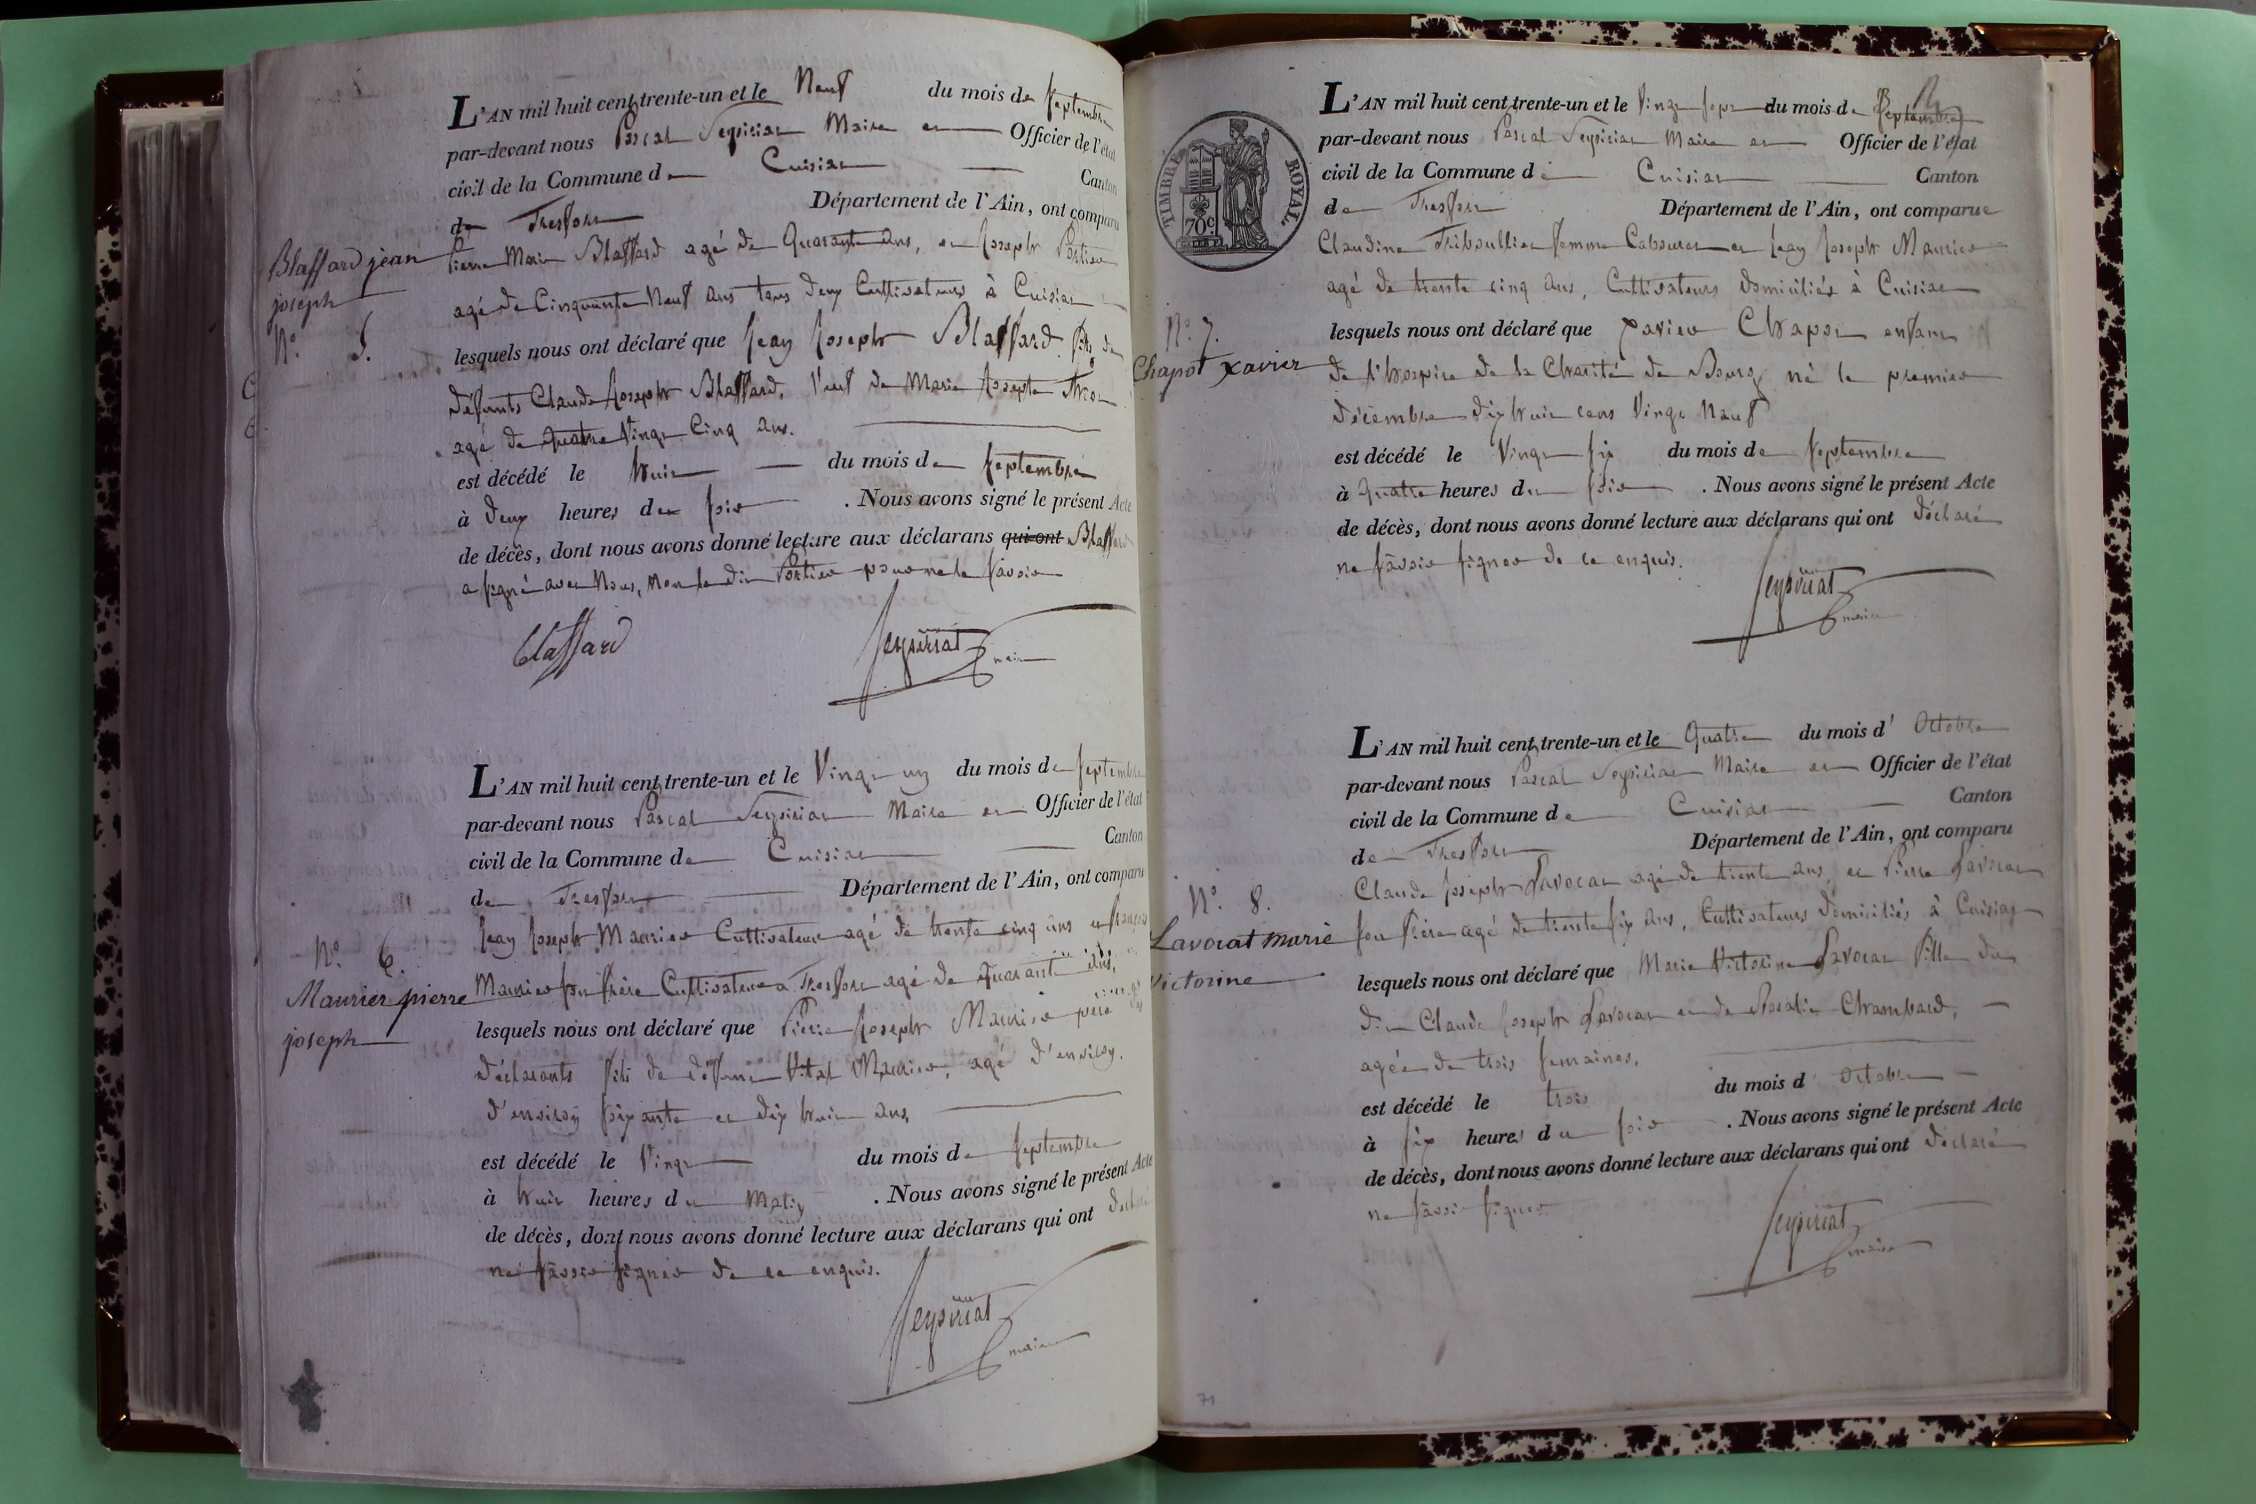 L'AN mil huit cent trente-un et le Neuf du mois de septembre
par-devant nous Pascal Seysiriat Maire et Officier de l'état
civil de la Commune de Cuisiat Canton
de Treffort Département de l'Ain, ont comparu
Pierre Marie Blaffard agé de Quarante ans, et Joseph
agé de Cinquante Neuf ans tous deux Cultivateurs à Cuisiat
Blaffard jean
joseph
N.º 5.
lesquels nous ont déclaré que Jean Joseph Blaffard fils de
défunts Claude Joseph Blaffard, Veuf de Marie Josepte
agé de Quatre Vingt Cinq ans.
est décédé le huit du mois de septembre
à deux heures du soir . Nous avons signé le présent Acte
de décès, dont nous avons donné lecture aux déclarans qui ont Blaffard
a signé avec Nous, Non le dit pour ne le savoir
blaffard Seysiriat maire
L'AN mil huit cent trente-un et le Vingt un du mois de septembre
par-devant nous Pascal Seysiriat Maire et Officier de l'état
civil de la Commune de Cuisiat Canton
de Treffort Département de l'Ain, ont comparu
Jean Joseph Maurier Cultivateur agé de trente cinq ans et françois
Maurier son frère Cultivateur a Treffort agé de Quarante ans,
N.º 6.
Maurier pierre
joseph
lesquels nous ont déclaré que Pierre Joseph Maurier père des
déclarants fils de défunt Vital Maurier, agé d'environ
d'environ soixante et dix huit ans,
est décédé le Vingt du mois de septembre
à huit heures du Matin . Nous avons signé le présent Acte
de décès, dont nous avons donné lecture aux déclarans qui ont déclaré
ne savoir signer de ce enquis.
Seysiriat maire
TIMBRE ROYAL.
70 c.
L'AN mil huit cent trente-un et le Vingt sept du mois de septembre
par-devant nous Pascal Seysiriat Maire et Officier de l'état
civil de la Commune de Cuisiat Canton
de Treffort Département de l'Ain, ont comparue
Claudine Thiboullier femme et Jean Joseph Maurier
agé de trente cinq ans, Cultivateurs domiciliés à Cuisiat
N.º 7.
Chapot xavier
lesquels nous ont déclaré que xavier Chapot enfant
de l'hospice de la Charité de Bourg né le premier
décembre dix huit cent Vingt Neuf
est décédé le Vingt six du mois de septembre
à Quatre heures du soir . Nous avons signé le présent Acte
de décès, dont nous avons donné lecture aux déclarans qui ont déclaré
ne savoir signer de ce enquis.
Seysiriat maire
L'AN mil huit cent trente-un et le Quatre du mois d' Octobre
par-devant nous Pascal Seysiriat Maire et Officier de l'état
civil de la Commune de Cuisiat Canton
de Treffort Département de l'Ain, ont comparu
Claude Joseph Lavocat agé de trente ans, et Pierre Lavocat
son frère agé de trente six ans, Cultivateurs domiciliés à Cuisiat
N.º 8.
Lavocat marie
victorine
lesquels nous ont déclaré que Marie Victorine Lavocat fille du
dit Claude Joseph Lavocat et de Rosalie Chambard,
agée de trois semaines.
est décédé le trois du mois d' Octobre
à six heures du soir . Nous avons signé le présent Acte
de décès, dont nous avons donné lecture aux déclarans qui ont déclaré
ne savoir signer
Seysiriat maire
71